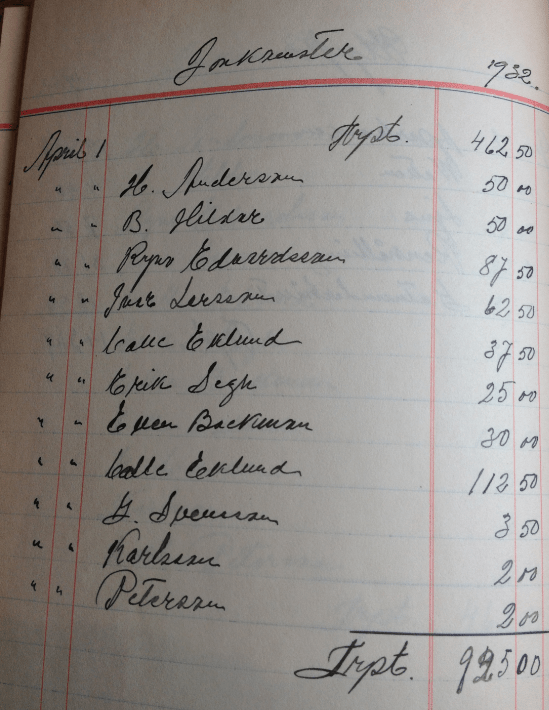 Inkomster 1932.
April 1 Trpt. 462 50
" " H. Anderson 50 00
" " B. 50 00
" " Edvardsson 87 50
" " Ivar Larsson 62 50
" " Calle Eklund 37 50
" " Erik 25 00
" " Backman 30 00
" " Calle Eklund 112 50
" " G. Svensson 3 50
" " Karlsson 2 00
" " Peterson 2 00
Trpt. 925 00